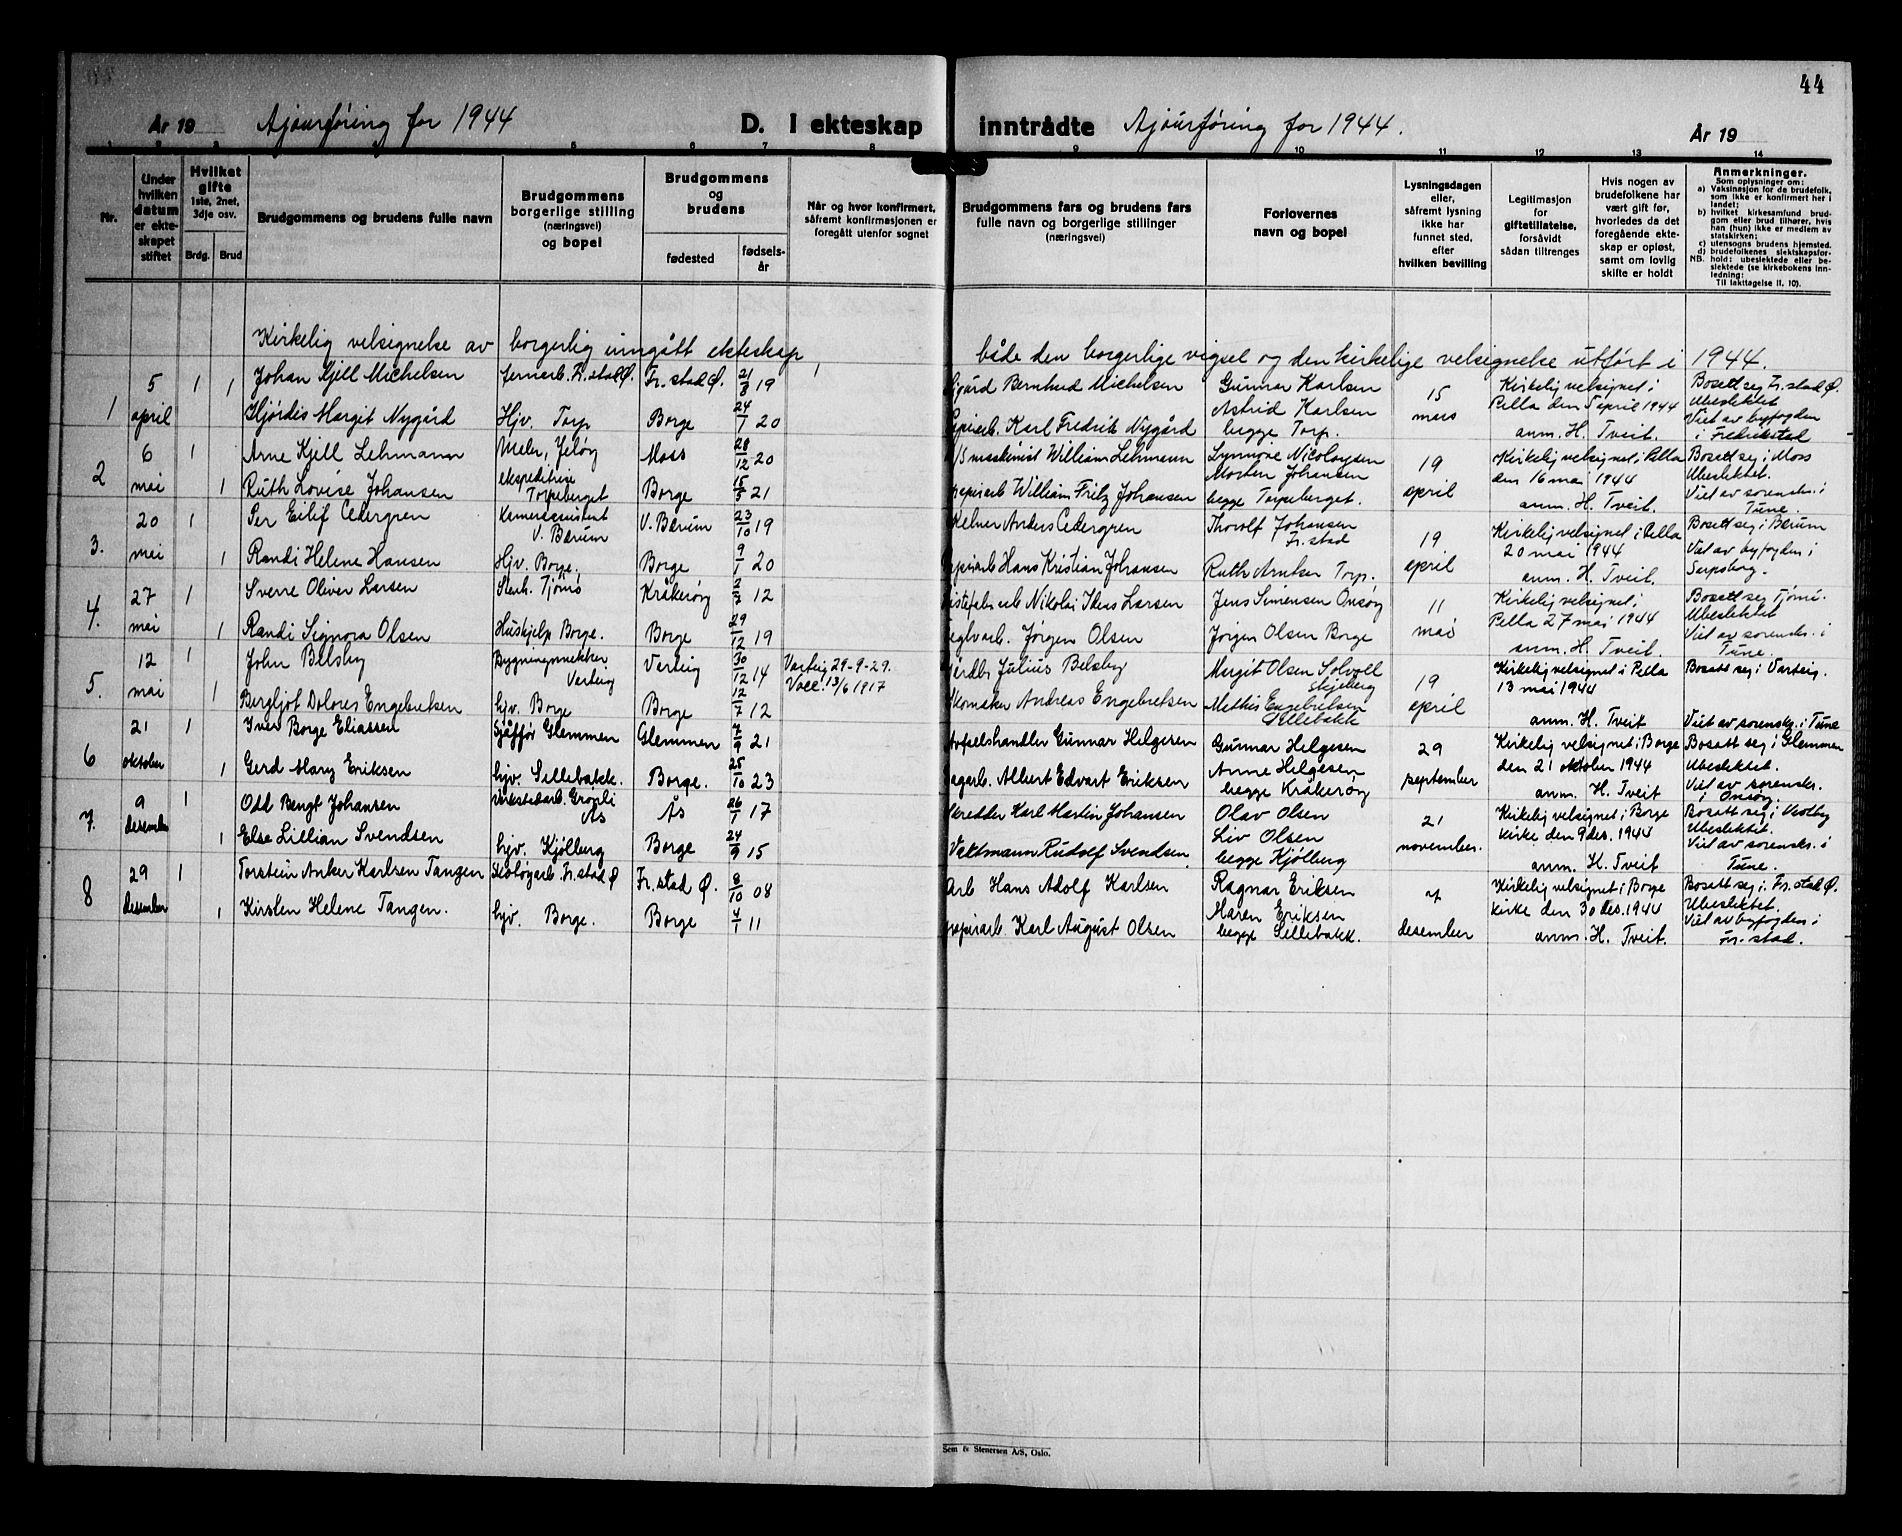 44
År 19 Ajourføring for 1944 D. I ekteskap inntrådte Ajourføring for 1944. År 19
1 2 3 4 5 6 7 8 9 10 11 12 13 14
Nr.
Under hvilken datum er ekteskapet stiftet
Hvilket gifte 1ste, 2net, 3dje osv.
Brdg. Brud
Brudgommens og brudens fulle navn
Brudgommens borgerlige stilling (næringsvei) og bopel
Brudgommens og brudens
fødested fødselsår
Når og hvor konfirmert, såfremt konfirmasjonen er foregått utenfor sognet
Brudgommens fars og brudens fars fulle navn og borgerlige stillinger (næringsvei)
Forlovernes navn og bopel
Lysningsdagen eller, såfremt lysning ikke har funnet sted, efter hvilken bevilling
Legitimasjon for giftetillatelse, forsåvidt sådan tiltrenges
Hvis nogen av brudefolkene har vært gift før, hvorledes da det foregående ekteskap er opløst, samt om lovlig skifte er holdt
Anmerkninger.
Som oplysninger om:
a) Vaksinasjon for de brudefolk, som ikke er konfirmert her i landet;
b) hvilket kirkesamfund brudgom eller brud tilhører, hvis han (hun) ikke er medlem av statskirken;
c) utensogns brudens hjemsted.
d) brudefolkenes slektskapsforhold: ubeslektede eller beslektede (se kirkebokens innledning:
NB. Til iakttagelse II, 10).
Kirkelig velsignelse av borgerlig inngått ekteskap, både den borgerlige vigsel og den kirkelige velsignelse utført i 1944.
1 5 april 1 1
Johan Kjell Michelsen Jernarb. Fr.stad Ø. Fr.stad Ø. 21/8 19
Hjørdis Margit Nygård Hjv. Torp Borge 24/1 20
Sigård Bernhard Michelsen
Papirarb. Karl Fredrik Nygård
Gunnar Karlsen
Astrid Karlsen
begge Torp.
15 mars
Kirkelig velsignet i
Pella den 5 april 1944
anm. H. Tveit.
Bosatt seg Fr.stad Ø.
Ubeslektet
Viet av byfogden
i Fredrikstad
2 6 mai 1 1
Arne Kjell Lehmann Maler, Jeløy Moss 28/12 20
Ruth Lovise Johansen ekspeditrise Torpeberget Borge 15/5 21
maskinist William Lehmann
papirarb William Fritz Johansen
Synnøve Nicolaysen
Morten Johansen
begge Torpeberget.
19 april
Kirkelig velsignet i Pella
den 16 mai 1944
anm. H. Tveit.
Bosatt seg i Moss
Ubeslektet.
Viet av sorenskr. i
Tune.
3. 20 mai 1 1
Per Eilif Cedergren Kemerassistent V. Bærum V. Bærum 23/10 19
Randi Helene Hansen Hjv. Borge. Borge 9/1 20
Kelner Anders Cedergren
papirarb Hans Kristian Johansen
Thorolf Johansen
Fr.stad
Ruth Anker Torp.
19 april
Kirkelig velsignet i Pella
20 mai 1944
anm. H. Tveit.
Bosatt seg i Bærum
Viet av byfogden i
Sarpsborg.
4. 27 mai 1 1
Sverre Oliver Larsen Tjømø Kråkerøy 2/7 12
Randi Signora Olsen Huskjelp Borge. Borge 29/12 19
Nikolai Larsen
teglvarb. Jørgen Olsen
Jens Simensen Onsøy
Jørgen Olsen Borge
11 mai
Kirkelig velsignet i
Pella 27 mai 1944
anm. H. Tveit.
Bosatt seg Tjøme.
Ubeslektet
Viet av sorenskr. i
Tune.
5. 12 mai 1 1
John Belsby Bygningssnekker Varteig Varteig 30/12 14 Varteig 29-9-29.
Vacc. 13/6 1917
Bergljot Dolores Engebretsen hjv. Borge Borge 12/7 12
Julius Belsby
Skomaker Andreas Engebretsen
Margit Olsen Solvoll
Skjeberg
Mathis Engebretsen
Sellebakk
19 april
Kirkelig velsignet i Pella
13 mai 1944
anm. H. Tveit
Bosatt seg i Varteig.
Viet av sorenskr. i Tune
6 21 oktober 1 1
Iver Borge Eliassen Sjåffør Glemmen Glemmen 7/9 21
Gerd Mary Eriksen hjv. Sellebakk. Borge. 25/10 23
Avfallshandler Gunnar Helgesen
Albert Edvart Eriksen
Gunnar Helgesen
Anne Helgesen
begge Kråkerøy
29 september
Kirkelig velsignet i Borge
den 21 oktober 1944
anm. H. Tveit
Bosatt seg i Glemmen
Ubeslektet.
Viet av sorenskr.
i Onsøy.
7. 9 desember 1 1
Odd Bengt Johansen Verkstedarb. Grønli Ås Ås 26/1 17
Else Lillian Svendsen hjv. Kjølberg Borge 24/9 15
Skredder Karl Martin Johansen
Vaktmann Rudolf Svendsen
Olav Olsen
Liv Olsen
begge Kjølberg
21 november.
Kirkelig velsignet i Borge
kirke den 9 des. 1944
anm. H. Tveit
Bosatt seg i Kroby
Ubeslektet.
Viet av sorenskr. i
Tune.
8 29 desember 1 1
Torstein Anker Karlsen Tangen Fr.stad Ø Fr.stad Ø. 8/10 08
Kirsten Helene Tangen. hjv. Borge. Borge 4/1 11
Arb Hans Adolf Karlsen
papirarb. Karl August Olsen
Ragnar Eriksen
Maren Eriksen
begge Sellebakk.
desember
Kirkelig velsignet i Borge
kirke den 30 des. 1944
anm. H. Tveit.
Bosatt seg i Fr.stad Ø.
Ubeslektet.
Viet av byfogden i
Fr.stad.
Sem & Stenersen A/S, Oslo.